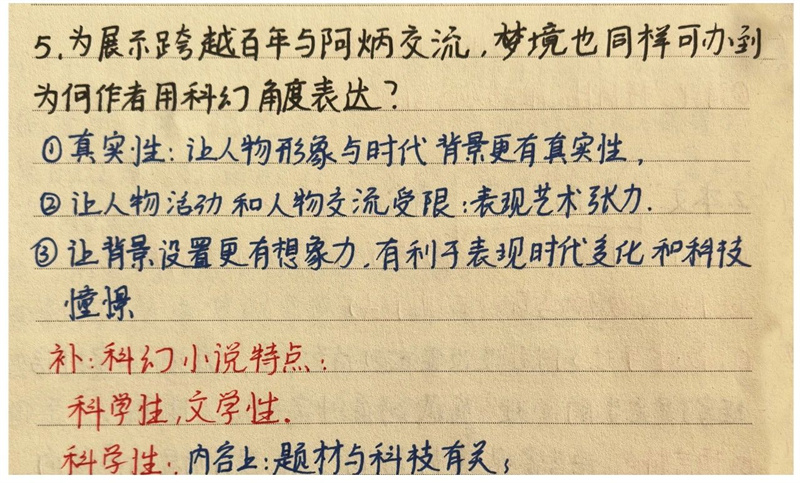 5.为展示跨越百年与阿炳交流,梦境也同样可办到
为何作者用科幻角度表达?
①真实性:让人物形象与时代背景更有真实性,
②让人物活动和人物交流受限:表现艺术张力.
③让背景设置更有想象力.有利于表现时代变化和科技
憧憬
补:科幻小说特点:
科学性,文学性.
科学性:内容上:题材与科技有关;